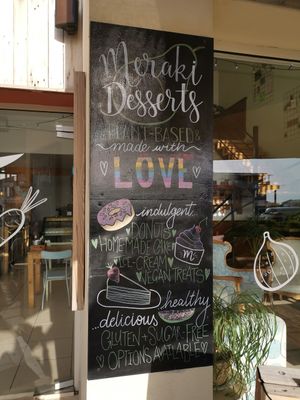 Meraki
Desserts
PLANT-BASED &
made with
LOVE
indulgent
DONUTS
HOMEMADE CAKE
ICE-CREAM
VEGAN TREATS
m
healthy
...delicious
GLUTEN + SUGAR-FREE
OPTIONS AVAILABLE